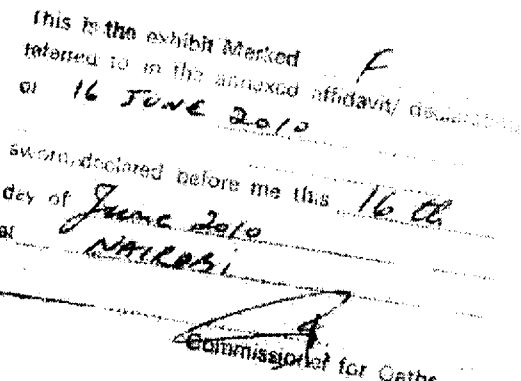 This is the exhibit Marked F
referred to in the annexed affidavit/
of 16 JUNE 2010
sworn/declared before me this 16 th
day of June 2010
at NAIROBI
Commissioner for Oaths